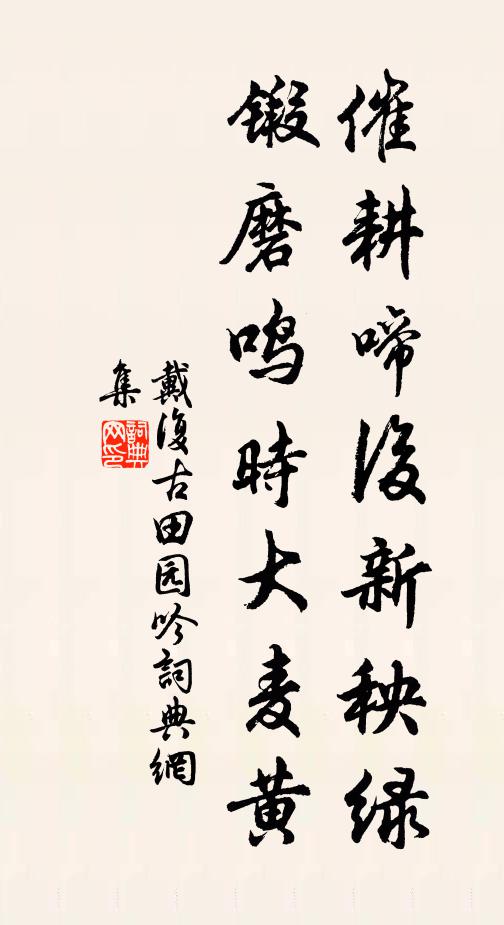 催耕啼後新秧緑
鍛磨鸣時大麦黄
戴復古田园吟詞典網
集
詞典
网印